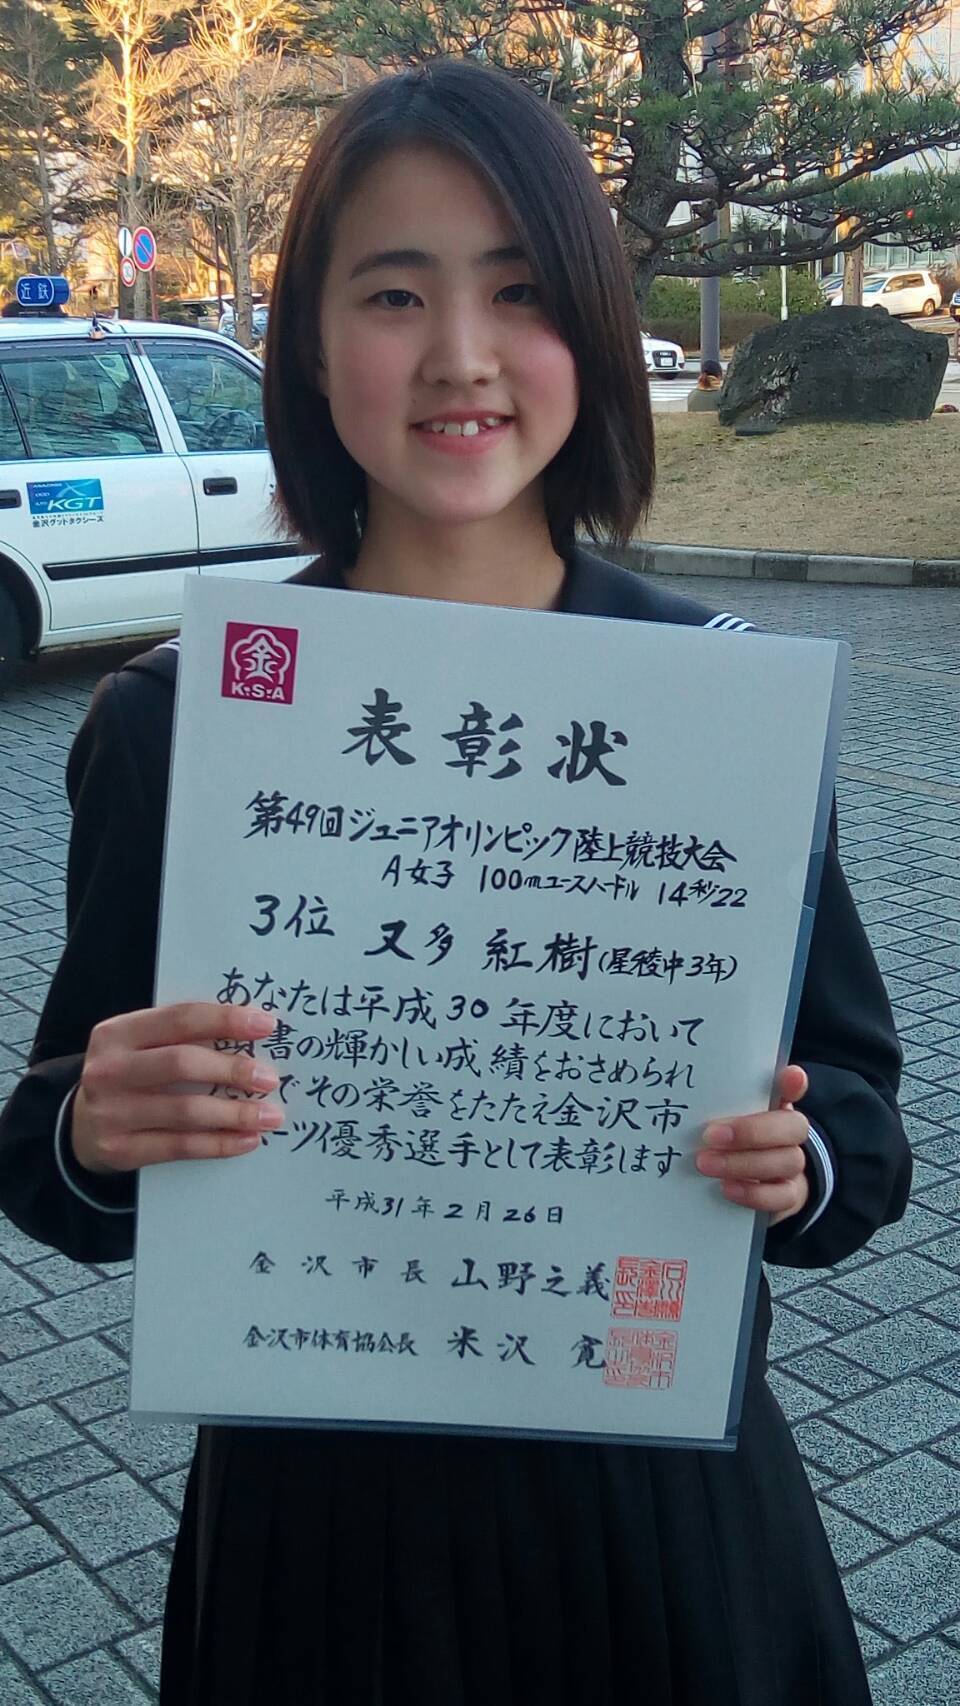 近鉄
KGT
金沢グッドタクシーズ
金
K・S・A
表彰状
第49回ジュニアオリンピック陸上競技大会
A女子 100mユースハードル 14秒22
3位 又多 紅樹(星稜中3年)
あなたは平成30年度において
書の輝かしい成績をおさめられ
でその栄誉をたたえ金沢市
ーツ優秀選手として表彰します
平成31年2月26日
金沢市長 山野之義
金沢市体育協会長 米沢 寛